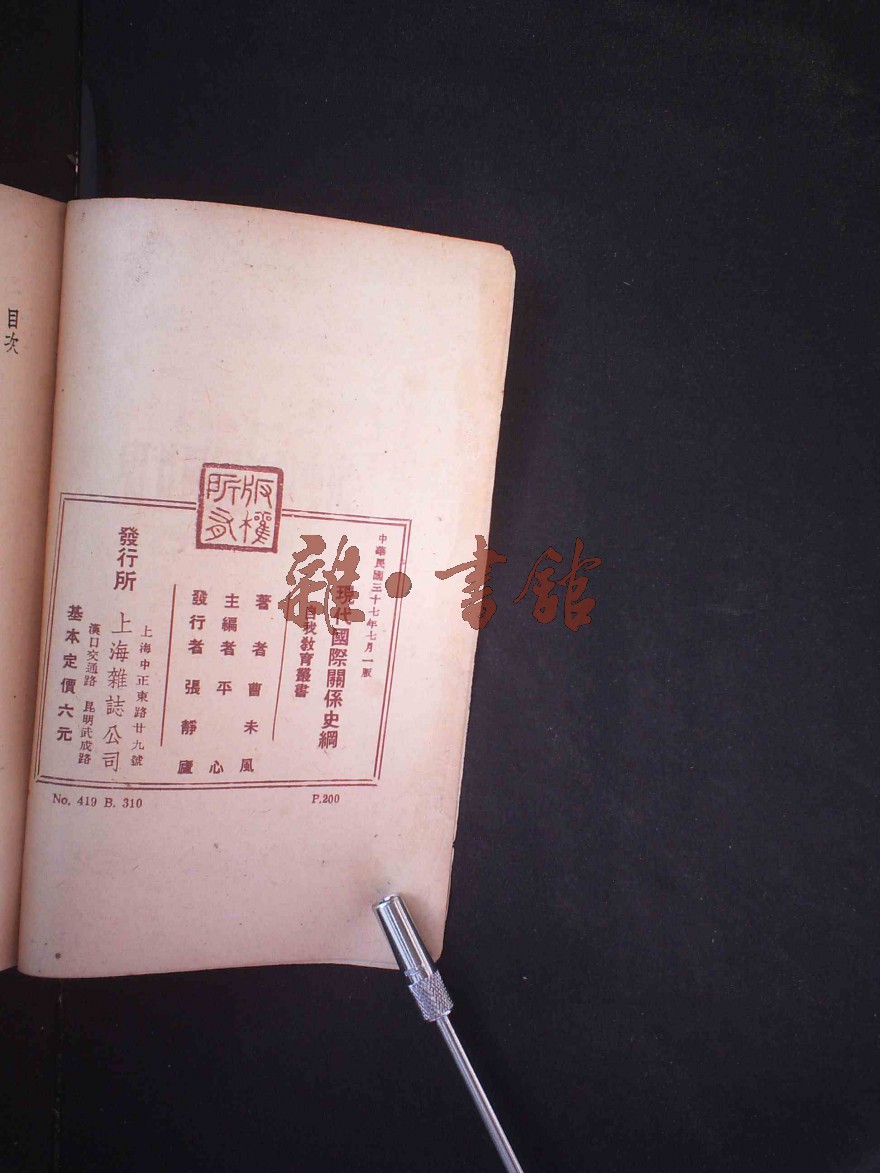 目次
版權所有
中華民國三十七年七月一版
現代國際關係史綱
自我教育叢書
著者 曹未風
主編者 平心
發行者 張靜廬
發行所 上海雜誌公司
上海中正東路廿九號
漢口交通路 昆明武成路
基本定價六元
No. 419 B. 310 P.200
雜·書館